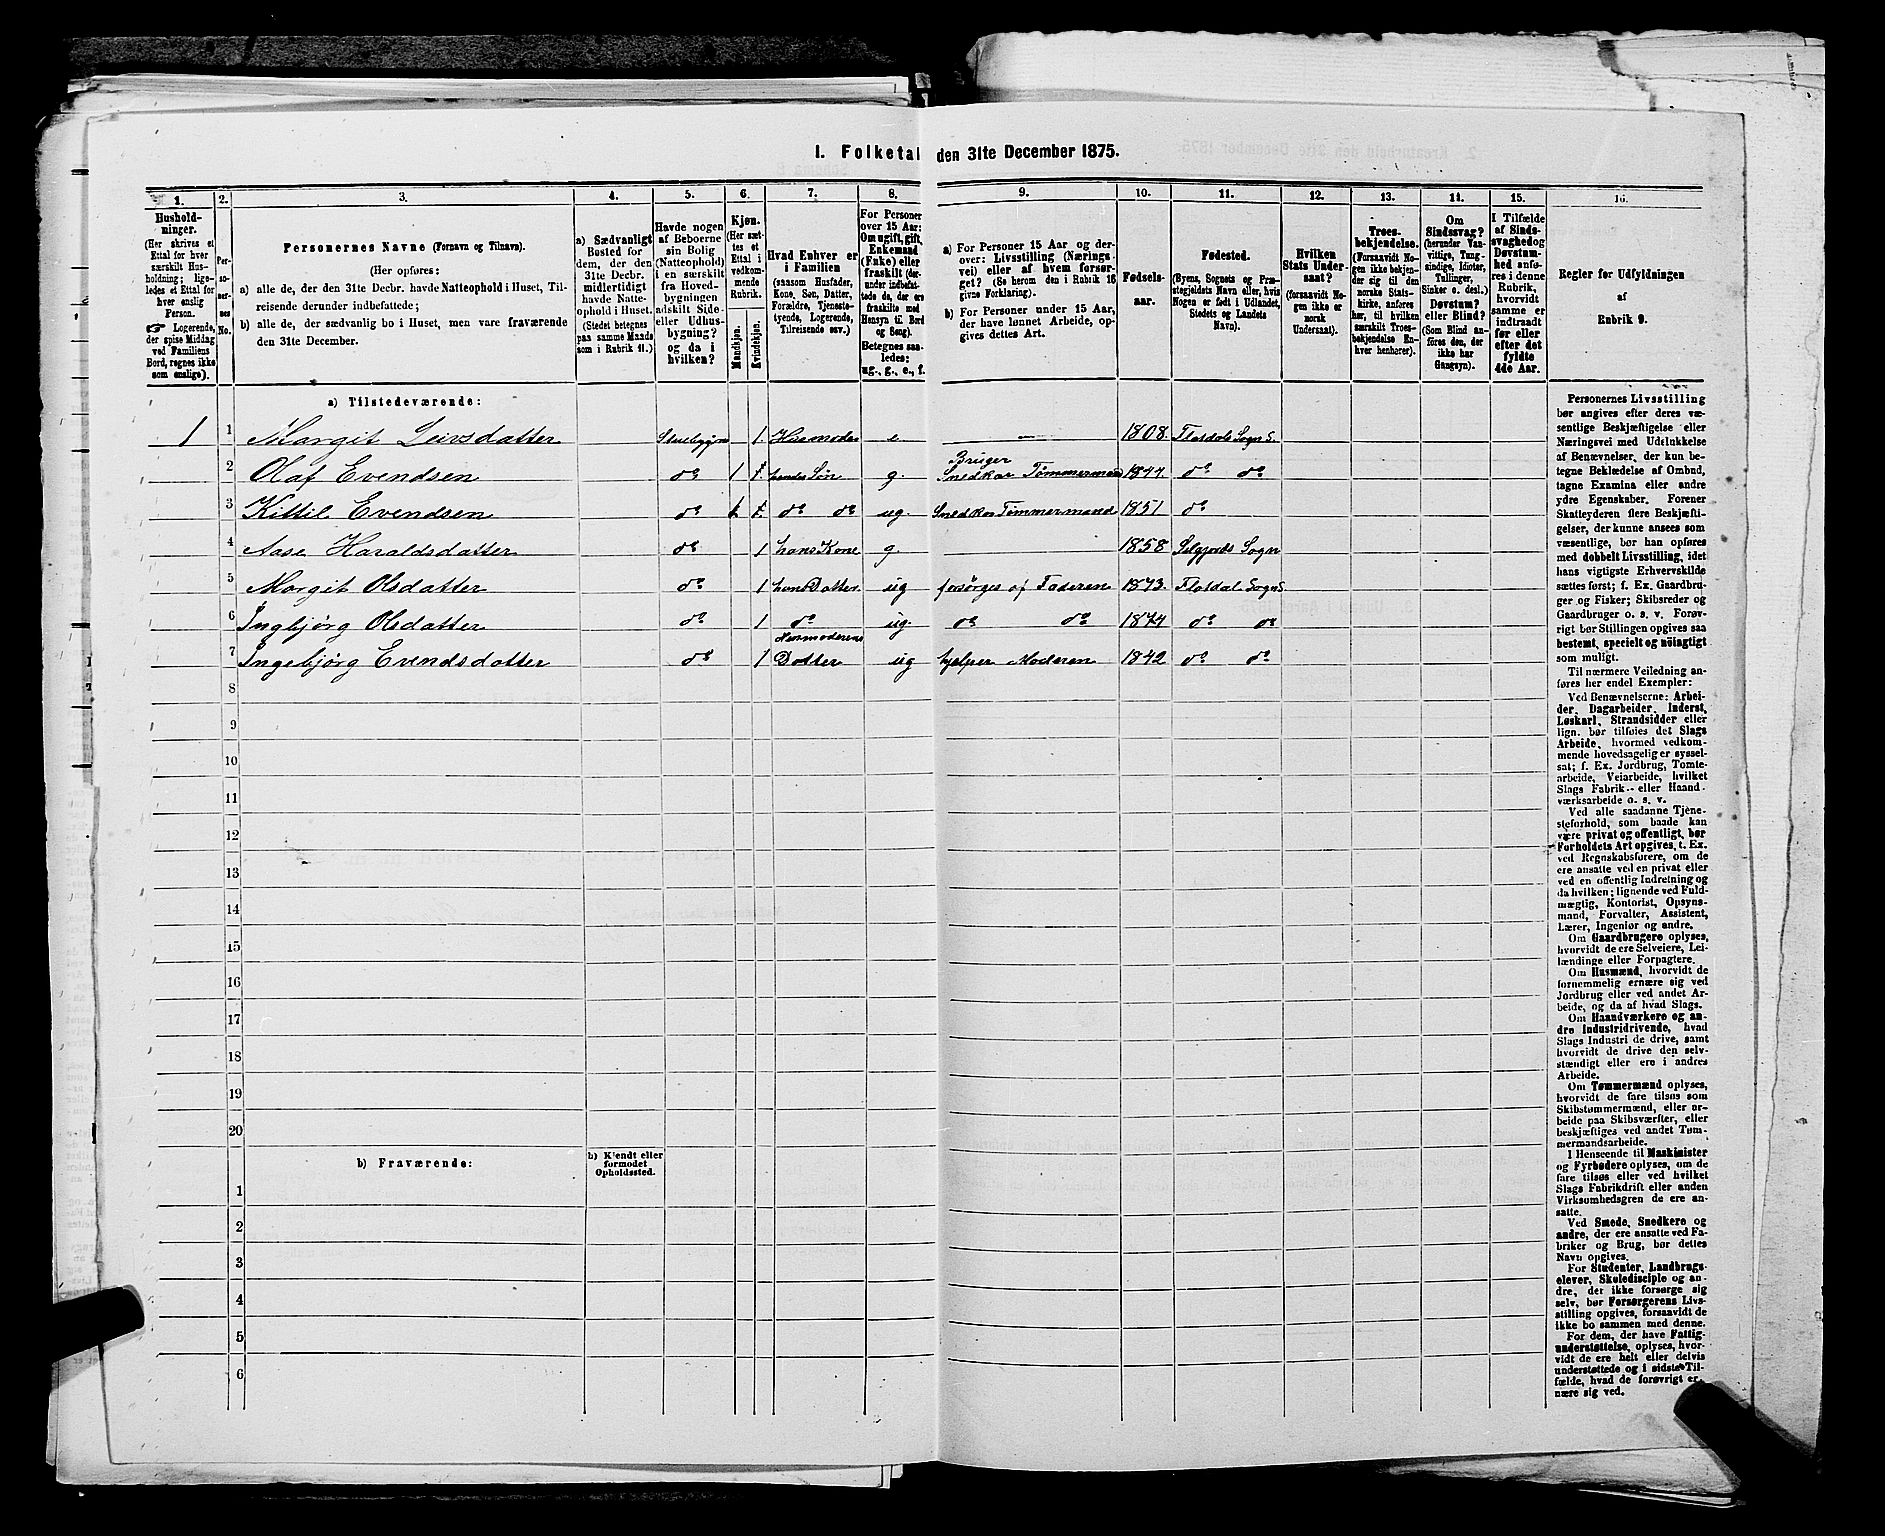 I. Folketal den 31te December 1875.
1. 2. 3. 4. 5. 6. 7. 8. 9. 10. 11. 12. 13. 14. 15. 16.
Hushold-
ninger.
(Her skrives et
Ettal for hver
særskilt Hus-
holdning; lige-
ledes et Ettal for
hver enslig
Person.
☞ Logerende,
der spise Middag
ved Familiens
Bord, regnes ikke
som enslige).
Per-
so-
ner-
nes
No.
Personernes Navne (Fornavn og Tilnavn).
(Her opføres:
a) alle de, der den 31te Decbr. havde Natteophold i Huset, Til-
reisende derunder indbefattede;
b) alle de, der sædvanlig bo i Huset, men vare fraværende
den 31te December.
a) Sædvanligt
Bosted for
dem, der den
31te Decbr.
midlertidigt
havde Natte-
ophold i Huset.
(Stedet betegnes
paa samme Maade
som i Rubrik 11.)
Havde nogen
af Beboerne
sin Bolig
(Natteophold)
i en særskilt
fra Hoved-
bygningen
adskilt Side-
eller Udhus-
bygning?
og da i
hvilken?
Kjøn.
(Her sæt-
tes et
Ettal i
vedkom-
mende
Rubrik.
Mandkjøn.
Kvindekjøn.
Hvad Enhver er
i Familien
(saasom Husfader,
Kone, Søn, Datter,
Forældre, Tjeneste-
tyende, Logerende,
Tilreisende osv.)
For Personer
over 15 Aar:
Om ugift, gift,
Enkemand
(Enke) eller
fraskilt (der-
under indbefat-
tede de, der ere
fraskilte med
Hensyn til Bord
og Seng).
Betegnes saa-
ledes:
ug., g., e., f.
a) For Personer 15 Aar og der-
over: Livsstilling (Nærings-
vei) eller af hvem forsør-
get? (Se herom den i Rubrik 16
givne Forklaring).
b) For Personer under 15 Aar,
der have lønnet Arbeide, op-
gives dettes Art.
Fødsels-
aar.
Fødested.
(Byens, Sognets og Præ-
stegjeldets Navn eller, hvis
Nogen er født i Udlandet,
Stedets og Landets
Navn).
Hvilken
Stats Under-
saat?
(forsaavidt No-
gen ikke er
norsk
Undersaat).
Troes-
bekjendelse.
(Forsaavidt No-
gen ikke bekjen-
der sig til den
norske Stats-
kirke, anføres
her, til hvilken
særskilt Troes-
bekjendelse En-
hver henhører).
Om
Sindssvag?
(herunder Van-
vittige, Tung-
sindige, Idioter,
Tullinger,
Sinker o. desl.)
Døvstum?
eller Blind?
(Som Blind an-
føres den, der
ikke har
Gangsyn).
I Tilfælde
af Sinds-
svaghed og
Døvstum-
hed anfø-
res i denne
Rubrik,
hvorvidt
samme er
indtraadt
før eller
efter det
fyldte
4de Aar.
Regler for Udfyldningen
af
Rubrik 9.
a) Tilstedeværende:
1 1 Margit Leivsdatter 1. Husmoder e — 1808. Flatdals Sogn S.
2 Olaf Evendsen do 1 hendes Søn g. Bruger Snedker Tømmermand 1844 do do
3 Kittil Evendsen do 1 do do ug. Snedker Tømmermand 1851 do
4 Aase Haraldsdatter do 1 hans Kone g. 1858 Selgjords Sogn
5 Margit Olsdatter do 1 hans Datter. ug forsørges af Faderen 1873. Flatdal Sogn S.
6 Ingbjørg Olsdatter do 1 do ug. do do 1874 do do
7 Ingebjørg Evendsdatter do 1 Husmoderens Datter ug hjelper Moderen 1842 do do
8
9
10
11
12
13
14
15
16
17
18
19
20
b) Fraværende:
b) Kjendt eller
formodet
Opholdssted.
1
2
3
4
5
6
Personernes Livsstilling
bør angives efter deres væ-
sentlige Beskjæftigelse eller
Næringsvei med Udelukkelse
af Benævnelser, der kun be-
tegne Beklædelse af Ombud,
tagne Examina eller andre
ydre Egenskaber. Forener
Skatteyderen flere Beskjæfti-
gelser, der kunne ansees som
væsentlige, bør han opføres
med dobbelt Livsstilling, idet
hans vigtigste Erhvervskilde
sættes først; f. Ex. Gaardbru-
ger og Fisker; Skibsreder og
Gaardbruger o. s. v. Forøv-
rigt bør Stillingen opgives saa
bestemt, specielt og nøiagtigt
som muligt.
Til nærmere Veiledning an-
føres her endel Exempler:
Ved Benævnelserne: Arbei-
der, Dagarbeider, Inderst,
Løskarl, Strandsidder eller
lign. bør tilføies det Slags
Arbeide, hvormed vedkom-
mende hovedsagelig er syssel-
sat; f. Ex. Jordbrug, Tomte-
arbeide, Veiarbeide, hvilket
Slags Fabrik- eller Haand-
værksarbeide o. s. v.
Ved alle saadanne Tjene-
steforhold, som baade kan
være privat og offentligt, bør
Forholdets Art opgives, t. Ex.
ved Regnskabsførere, om de
ere ansatte ved en privat eller
ved en offentlig Indretning og
da hvilken; lignende ved Fuld-
mægtig, Kontorist, Opsyns-
mand, Forvalter, Assistent,
Lærer, Ingeniør og andre.
Om Gaardbrugere oplyses,
hvorvidt de ere Selveiere, Lei-
lændinge eller Forpagtere.
Om Husmænd, hvorvidt de
fornemmelig ernære sig ved
Jordbrug eller ved andet Ar-
beide, og da af hvad Slags.
Om Haandværkere og an-
dre Industridrivende, hvad
Slags Industri de drive, samt
hvorvidt de drive den selv-
stændigt eller ere i andres
Arbeide.
Om Tømmermænd oplyses,
hvorvidt de fare tilsøs som
Skibstømmermænd, eller ar-
beide paa Skibsværfter, eller
beskjæftiges ved andet Tøm-
mermandsarbeide.
I Henseende til Maskinister
og Fyrbødere oplyses, om de
fare tilsøs eller ved hvilket
Slags Fabrikdrift eller anden
Virksomhedsgren de ere an-
satte.
Ved Smede, Snedkere og
andre, der ere ansatte ved Fa-
briker og Brug, bør dettes
Navn opgives.
For Studenter, Landbrugs-
elever, Skoledisciple og an-
dre, der ikke forsørge sig
selv, bør Forsørgerens Livs-
stilling opgives, forsaavidt de
ikke bo sammen med denne.
For dem, der have Fattig-
understøttelse, oplyses, hvor-
vidt de ere helt eller delvis
understøttede og i sidste Til-
fælde, hvad de forøvrigt er-
nære sig ved.